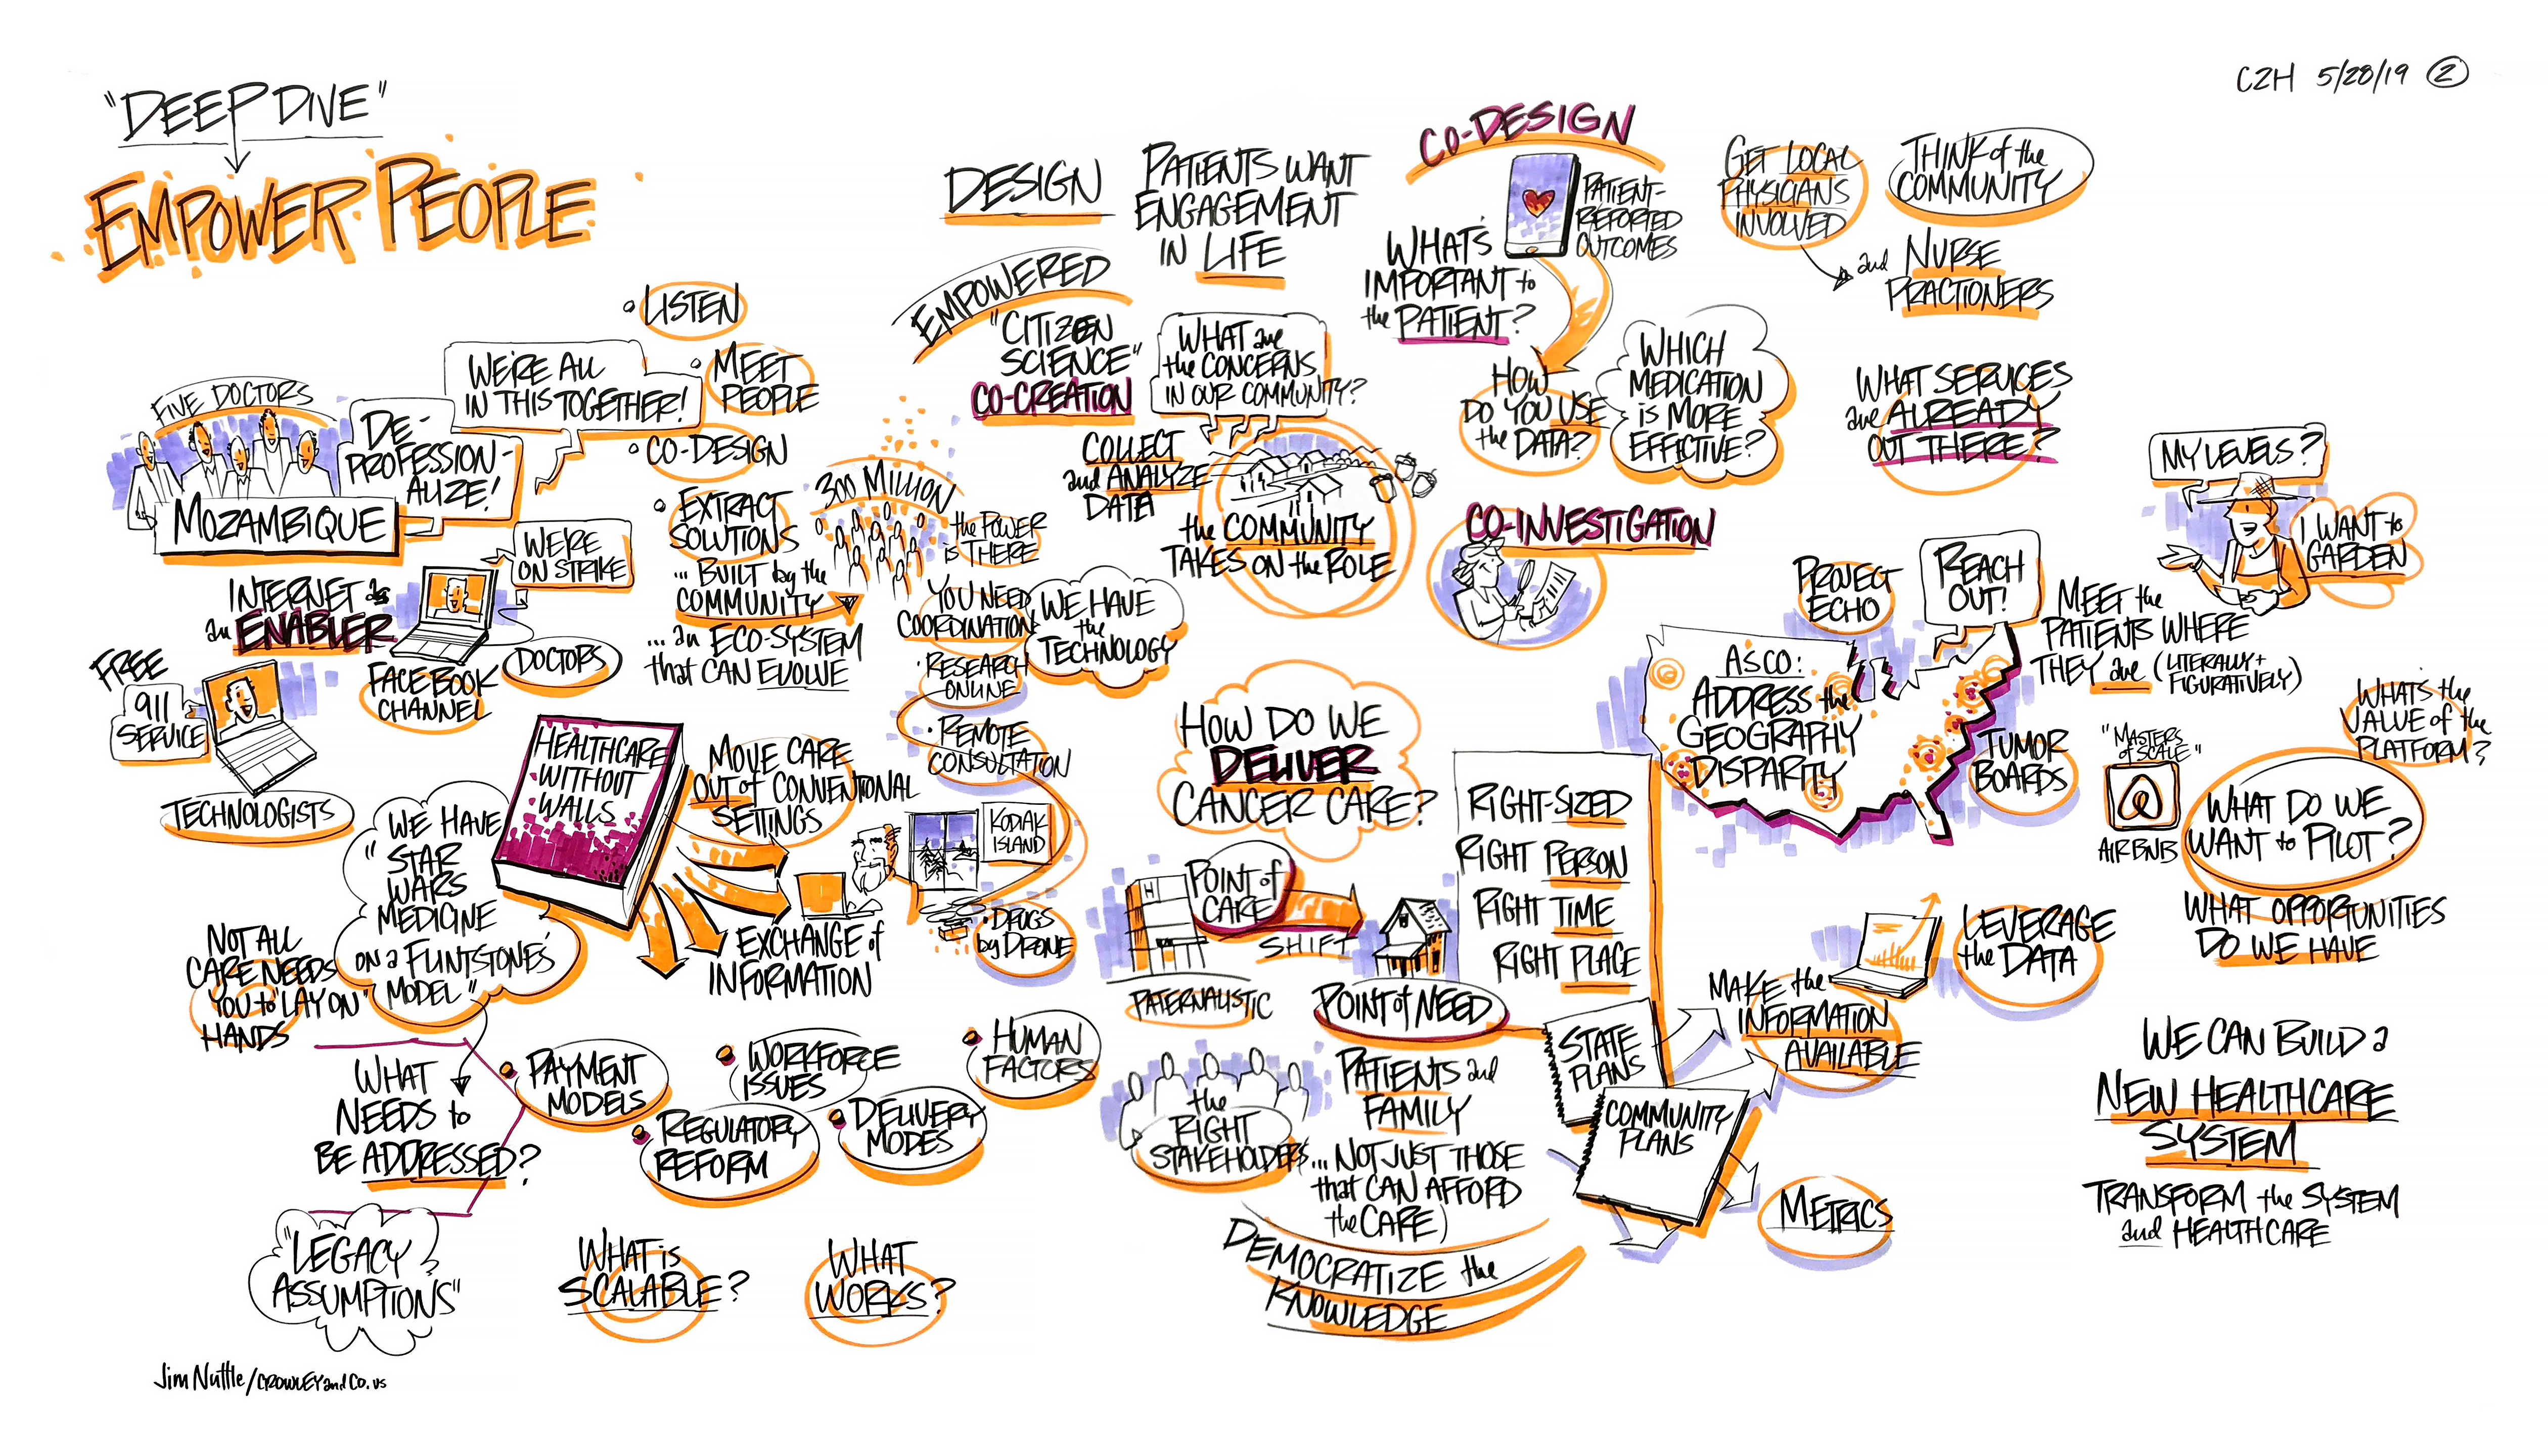 "DEEP DIVE"
EMPOWER PEOPLE
C2H 5/28/19 2
• LISTEN
• MEET
PEOPLE
• CO-DESIGN
• EXTRACT
SOLUTIONS
... BUILT by the
COMMUNITY
... an ECO-SYSTEM
that CAN EVOLVE
FIVE DOCTORS
MOZAMBIQUE
DE-
PROFESSION-
ALIZE!
WE'RE ALL
IN THIS TOGETHER!
INTERNET as
an ENABLER
WE'RE
ON STRIKE
DOCTORS
FACEBOOK
CHANNEL
FREE
911
SERVICE
TECHNOLOGISTS
300 MILLION
the POWER
is THERE
YOU NEED
COORDINATION
WE HAVE
the
TECHNOLOGY
• RESEARCH
ONLINE
• REMOTE
CONSULTATION
KODIAK
ISLAND
• DRUGS
by DRONE
HEALTHCARE
WITHOUT
WALLS
MOVE CARE
OUT of CONVENTIONAL
SETTINGS
EXCHANGE of
INFORMATION
WE HAVE
"STAR
WARS
MEDICINE
ON a FLINTSTONE'S
MODEL"
NOT ALL
CARE NEEDS
YOU to "LAY ON"
HANDS
WHAT
NEEDS to
BE ADDRESSED?
"LEGACY
ASSUMPTIONS"
• PAYMENT
MODELS
• WORKFORCE
ISSUES
• REGULATORY
REFORM
• DELIVERY
MODES
• HUMAN
FACTORS
WHAT is
SCALABLE?
WHAT
WORKS?
Jim Nuttle/CROWLEYandCo.us
DESIGN
PATIENTS WANT
ENGAGEMENT
IN LIFE
EMPOWERED
"CITIZEN
SCIENCE"
CO-CREATION
WHAT are
the CONCERNS
IN OUR COMMUNITY?
COLLECT
and ANALYZE
DATA
the COMMUNITY
TAKES ON the ROLE
CO-DESIGN
PATIENT-
REPORTED
OUTCOMES
WHAT'S
IMPORTANT to
the PATIENT?
HOW
DO YOU USE
the DATA?
WHICH
MEDICATION
is MORE
EFFECTIVE?
CO-INVESTIGATION
GET LOCAL
PHYSICIANS
INVOLVED
and NURSE
PRACTIONERS
THINK of the
COMMUNITY
WHAT SERVICES
are ALREADY
OUT THERE?
MY LEVELS?
I WANT to
GARDEN
PROJECT
ECHO
REACH
OUT!
MEET the
PATIENTS WHERE
THEY are (LITERALLY +
FIGURATIVELY)
ASCO:
ADDRESS the
GEOGRAPHY
DISPARITY
TUMOR
BOARDS
HOW DO WE
DELIVER
CANCER CARE?
H
POINT of
CARE
SHIFT
PATERNALISTIC
POINT of NEED
RIGHT-SIZED
RIGHT PERSON
RIGHT TIME
RIGHT PLACE
the
RIGHT
STAKEHOLDERS
PATIENTS and
FAMILY
... NOT JUST THOSE
that CAN AFFORD
the CARE)
DEMOCRATIZE the
KNOWLEDGE
STATE
PLANS
COMMUNITY
PLANS
MAKE the
INFORMATION
AVAILABLE
LEVERAGE
the DATA
METRICS
"MASTERS
of SCALE"
AIRBNB
WHAT'S the
VALUE of the
PLATFORM?
WHAT DO WE
WANT to PILOT?
WHAT OPPORTUNITIES
DO WE HAVE
WE CAN BUILD a
NEW HEALTHCARE
SYSTEM
TRANSFORM the SYSTEM
and HEALTHCARE